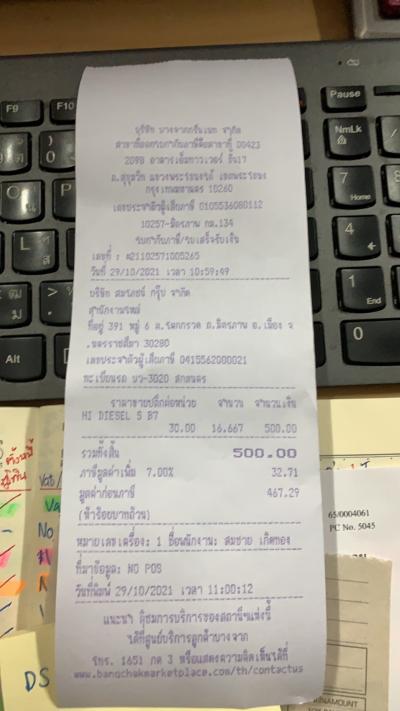 บริษัท บางจากกรีนเนท จำกัด
สาขาที่ออกใบกำกับภาษีคือสาขาที่ 00423
2098 อาคารเอ็มทาวเวอร์ ชั้น17
ถ.สุขุมวิท แขวงพระโขนงใต้ เขตพระโขนง
กรุงเทพมหานคร 10260
เลขประจำตัวผู้เสียภาษี 0105536080112
10257-มิตรภาพ กม.134
ใบกำกับภาษี/ใบเสร็จรับเงิน
เลขที่ : #21102571005265
วันที่ 29/10/2021 เวลา 10:59:49
บริษัท สมโภชน์ กรุ๊ป จำกัด
สำนักงานใหญ่
ที่อยู่ 391 หมู่ 6 ต.โคกกรวด ถ.มิตรภาพ อ.เมือง จ
.นครราชสีมา 30280
เลขประจำตัวผู้เสียภาษี 0415562000021
ทะเบียนรถ บว-3020 สกลนคร
ราคาขายปลีกต่อหน่วย จำนวน จำนวนเงิน
HI DIESEL S B7
30.00 16.667 500.00
รวมทั้งสิ้น 500.00
ภาษีมูลค่าเพิ่ม 7.00% 32.71
มูลค่าก่อนภาษี 467.29
(ห้าร้อยบาทถ้วน)
หมายเลขเครื่อง: 1 ชื่อพนักงาน: สมชาย เกิดทอง
ที่มาข้อมูล: NO POS
วันที่พิมพ์ 29/10/2021 เวลา 11:00:12
แนะนำ ติชมการบริการของสถานีฯแห่งนี้
ได้ที่ศูนย์บริการลูกค้าบางจาก
โทร. 1651 กด 3 หรือแสดงความคิดเห็นได้ที่
www.bangchakmarketplace.com/th/contactus
F9
F10
Pause
NmLk
7
Home
4
1
End
0
Alt
O
P
L
65/0004061
PC No. 5045
No
DS